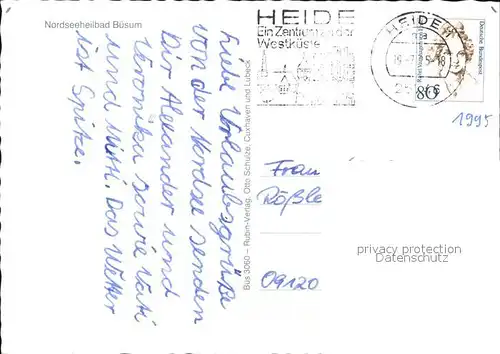 Nordseeheilbad Büsum
Liebe Urlaubsgrüße
von der Nordsee senden
Dir Alexander und
Veronika sowie Kati
und Mitti. Das Wetter
ist Spitze.
Büs 3060 – Rubin-Verlag, Otto Schulze, Cuxhaven und Lübeck
HEIDE
Ein Zentrum an der
Westküste
HEIDE
18
Deutsche Bundespost
80
1995
Frau
Rößle
09120
privacy protection
Datenschutz